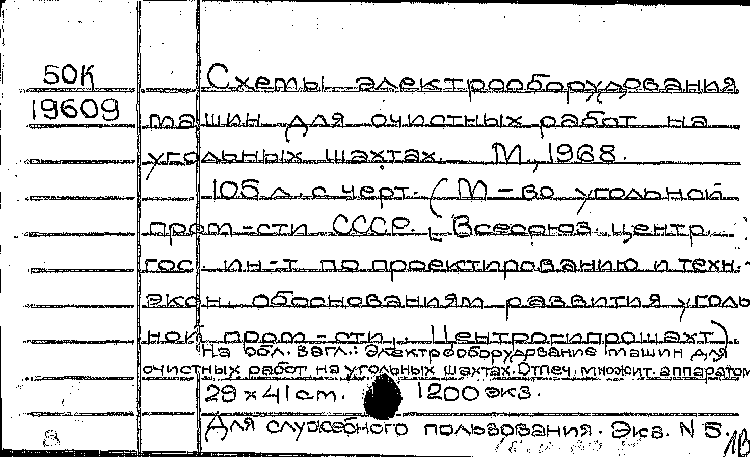 50К
Схемы электрооборудования
19609
машин для очистных работ на
угольных шахтах. М., 1968.
105 л. с черт. (М-во угольной
пром-сти СССР. Всесоюз. центр.
гос. ин-т по проектированию и техн.-
экон. обоснованиям развития уголь
ной пром-сти „Центрогипрошахт”).
На обл. загл.: Электрооборудование машин для
очистных работ на угольных шахтах. Отпеч. множит. аппаратом
29 х 41 cm. 1200 экз.
Для служебного пользования. Экз. N 5.
8